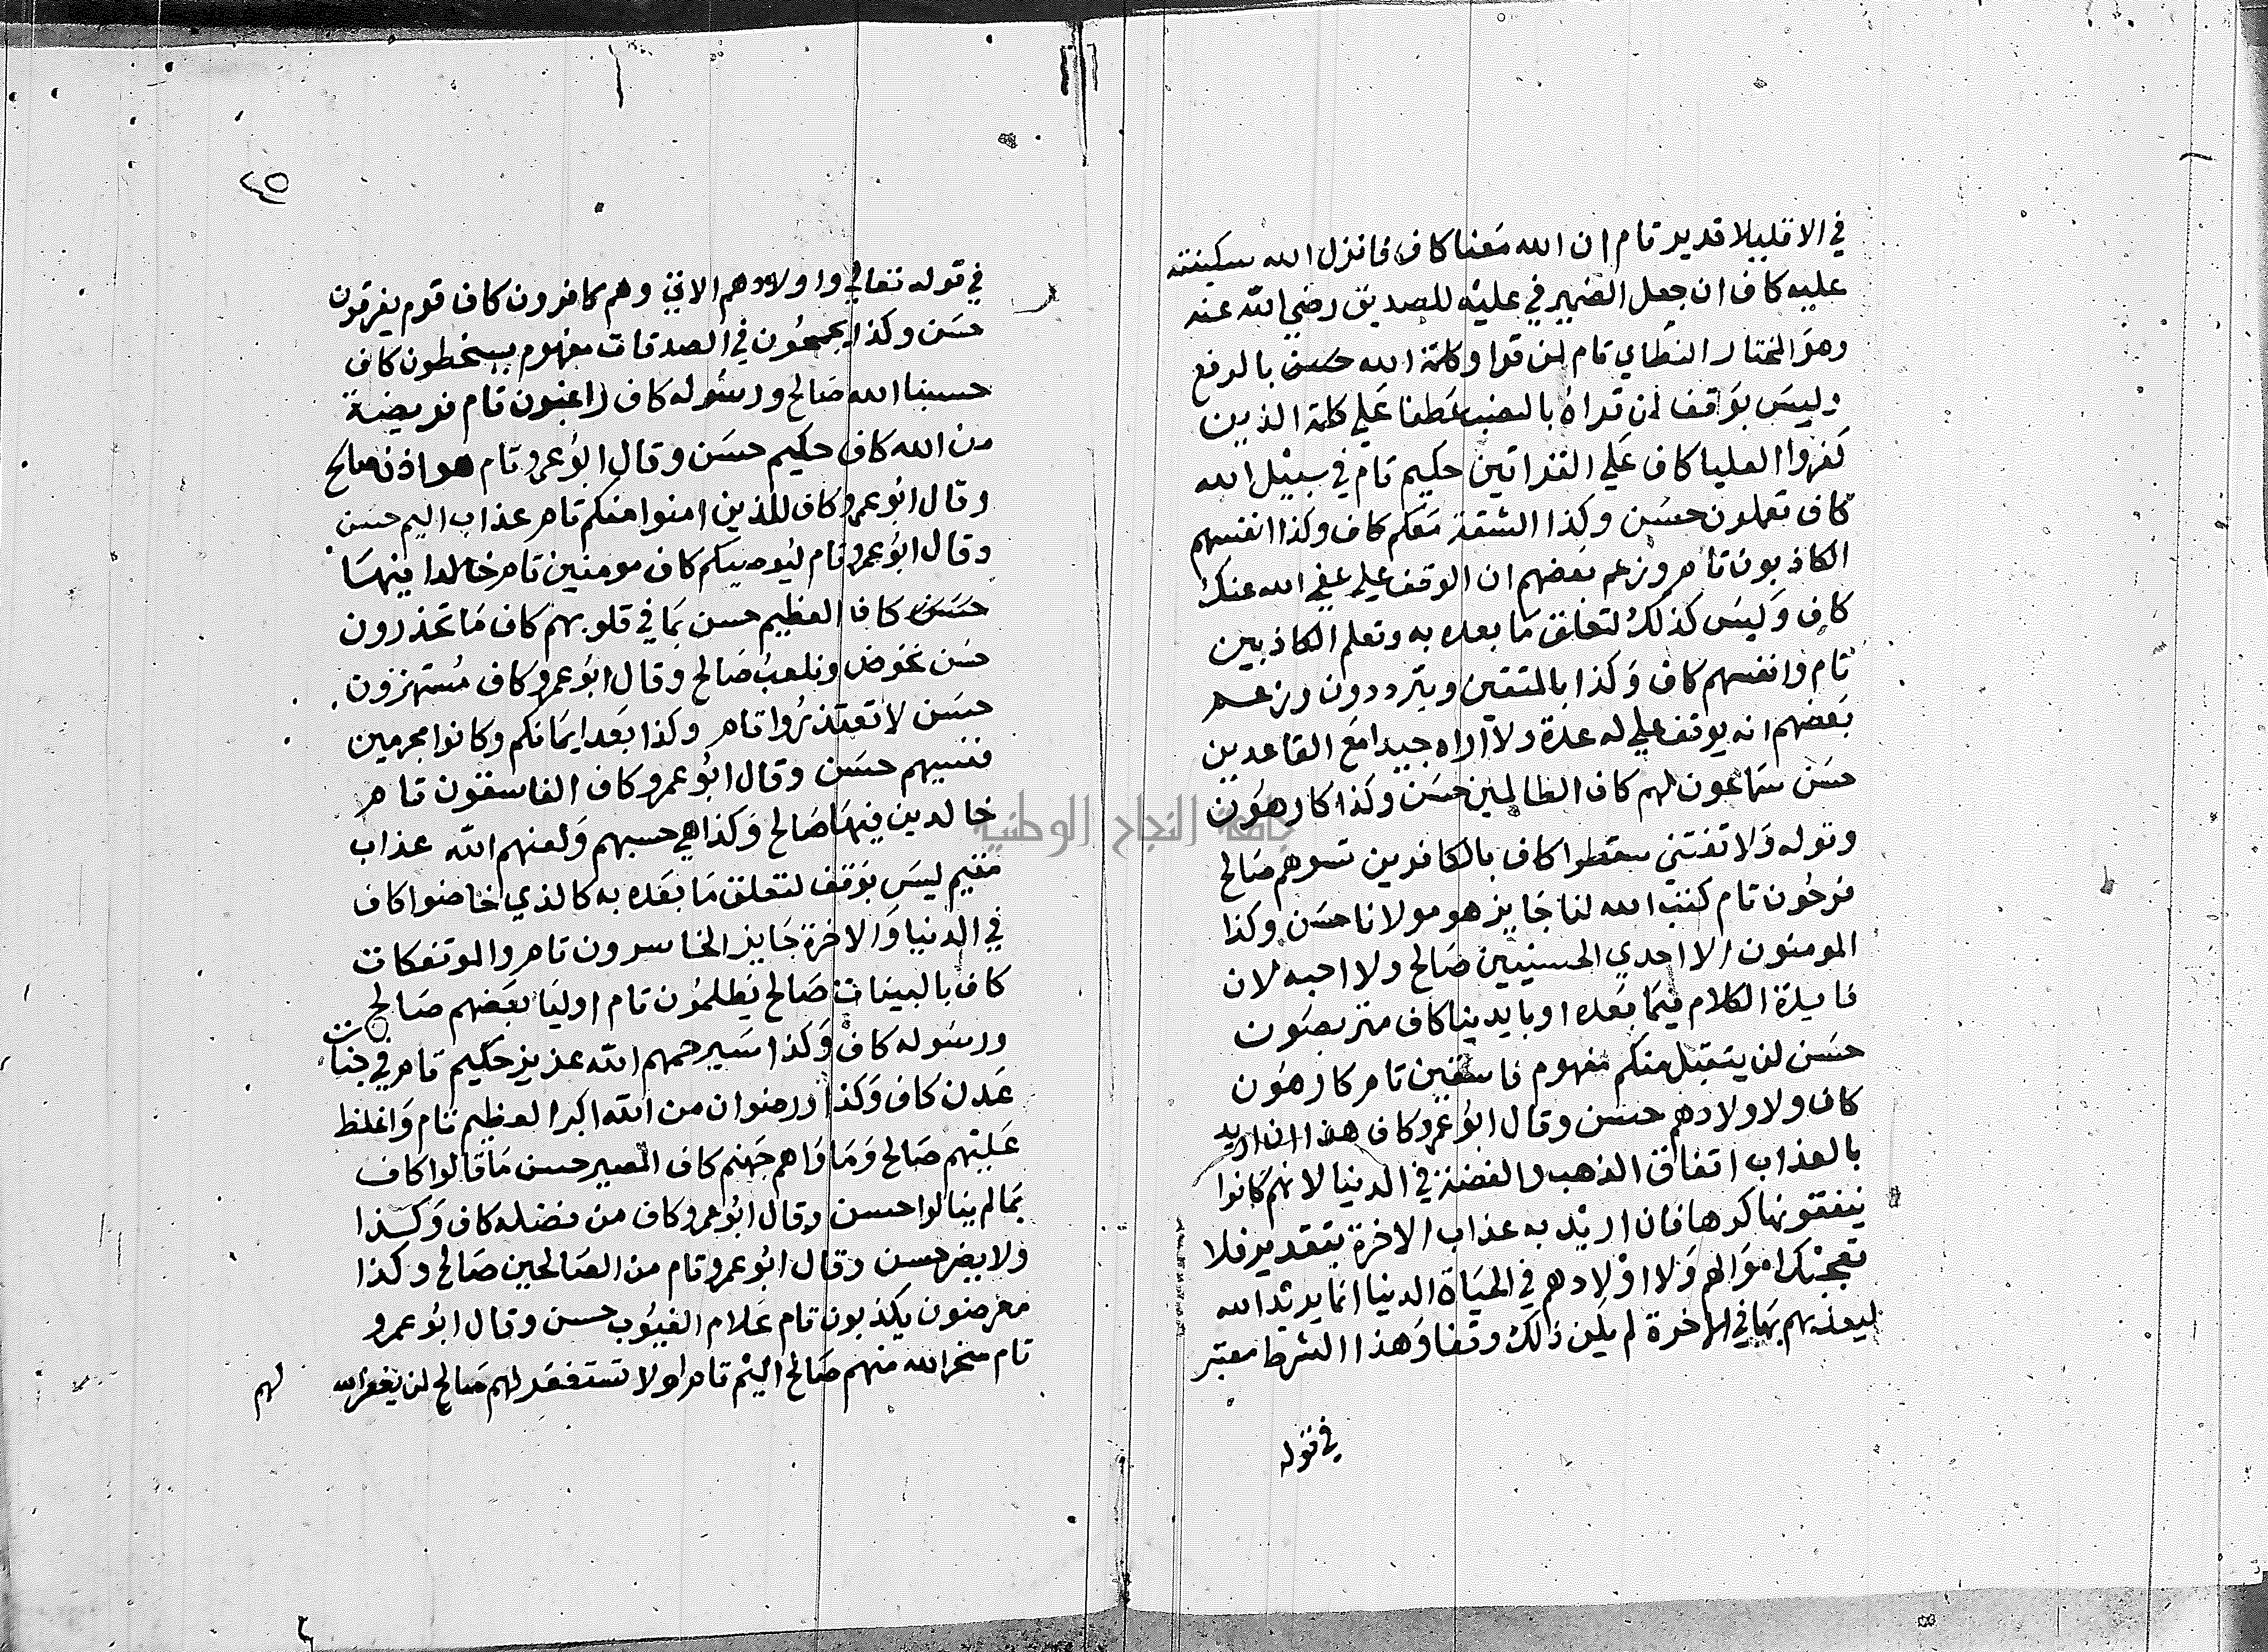 في الا قليلا قدير تام ان الله معنا كاف فانزل الله سكينته
عليه كاف ان جعل الضمير في عليه للصديق رضي الله عنه
وهو المختار النطاي تام لن قرا وكلمة الله حسن بالرفع
وليس بوقف لن قراه بالنصب عطفا علي كلمة الذين
كفروا العليا كاف علي القراتين حكيم تام في سبيل الله
كاف تعلمون حسن وكذا الشقة معكم كاف وكذا انفسهم
الكاذبون تام وزعم بعضهم ان الوقف علي عفي الله عنك
كاف وليس كذلك لتعلق ما بعده به وتعلم الكاذبين
تام وانفسهم كاف وكذا بالمتقين ويترددون وزعم
بعضهم انه يوقف علي له عدة ولا اراه جيدا مع القاعدين
حسن سماعون لهم كاف الظالمين حسن وكذا كارهون
وقوله ولا تفتني سقطوا كاف بالكافرين تسوهم صالح
فرحون تام كتب الله لنا جايز هو مولانا حسن وكذا
المومنون الا احدي الحسنيين صالح ولا احبه لان
فايدة الكلام فيما بعده او بايدينا كاف متربصون
حسن لن يتقبل منكم مفهوم فاسقين تام كارهون
كاف ولا ولادهم حسن وقال ابو عمرو كاف هذا ان اريد
بالعذاب انفاق الذهب والفضة في الدنيا لانهم كانوا
ينفقونها كرها فان اريد به عذاب الاخرة بتقدير فلا
تعجبك اموالهم ولا اولادهم في الحياة الدنيا انما يريد الله
ليعذبهم بها في الاخرة لم يكن ذلك وقفا وهذا الشرط معتبر
في قوله
٤٥
في قوله تعالي واولادهم الاتي وهم كافرون كاف قوم يفرقون
حسن وكذا يجمحون في الصدقات مفهوم يسخطون كاف
حسبنا الله صالح ورسوله كاف راغبون تام فريضة
من الله كاف حكيم حسن وقال ابو عمرو تام هو اذن صالح
وقال ابو عمرو كاف للذين امنوا منكم تام عذاب اليم حسن
وقال ابو عمرو تام ليرضوكم كاف مومنين تام خالدا فيها
حسن كاف العظيم حسن بما في قلوبهم كاف ما تحذرون
حسن نخوض ونلعب صالح وقال ابو عمرو كاف مستهزون
حسن لا تعتذروا تام وكذا بعد ايمانكم وكانوا مجرمين
فنسيهم حسن وقال ابو عمرو كاف الفاسقون تام
خالدين فيها صالح وكذا هي حسبهم ولعنهم الله عذاب
مقيم ليس بوقف لتعلق ما بعده به كالذي خاضوا كاف
في الدنيا والاخرة جايز الخاسرون تام والموتفكات
كاف بالبينات صالح يظلمون تام اوليا بعضهم صالح
ورسوله كاف وكذا سيرحمهم الله عزيز حكيم تام في جنات
عدن كاف وكذا ورضوان من الله اكبر العظيم تام واغلظ
عليهم صالح وماواهم جهنم كاف المصير حسن ما قالوا كاف
بما لم ينالوا حسن وقال ابو عمرو كاف من فضله كاف وكذا
ولا نصير حسن وقال ابو عمرو تام من الصالحين صالح وكذا
معرضون يكذبون تام علام الغيوب حسن وقال ابو عمرو
تام سخر الله منهم صالح اليم تام او لا تستغفر لهم صالح لن يغفر الله
لهم
جامعة النجاح الوطنية